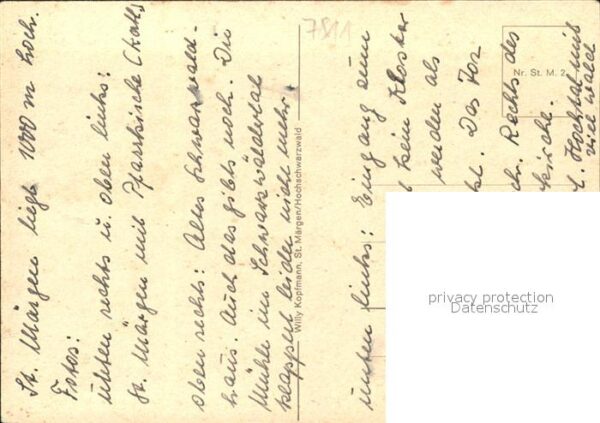 St. Märgen liegt 1000 m hoch.
Fotos:
unten rechts u. oben links:
St. Märgen mit Pfarrkirche (Kath.
oben rechts: Altes Schwarzwald-
haus. Auch das gibts noch. Die
Mühle im Schwarzwäldertal
klappert leider nicht mehr.
Willy Kopfmann, St. Märgen/Hochschwarzwald
unten links: Eingang zum
kein Kloster
werden als
Das Tor
Rechts des
kirche.
Hochtal mit
viel Wald
Nr. St. M. 2
7811
privacy protection
Datenschutz